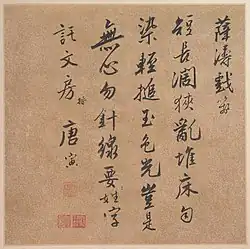 薛濤戲箋
短長濶狹亂堆床匀
染輕搥玉色光豈是
無心勿針線要姓字
託文房 唐寅